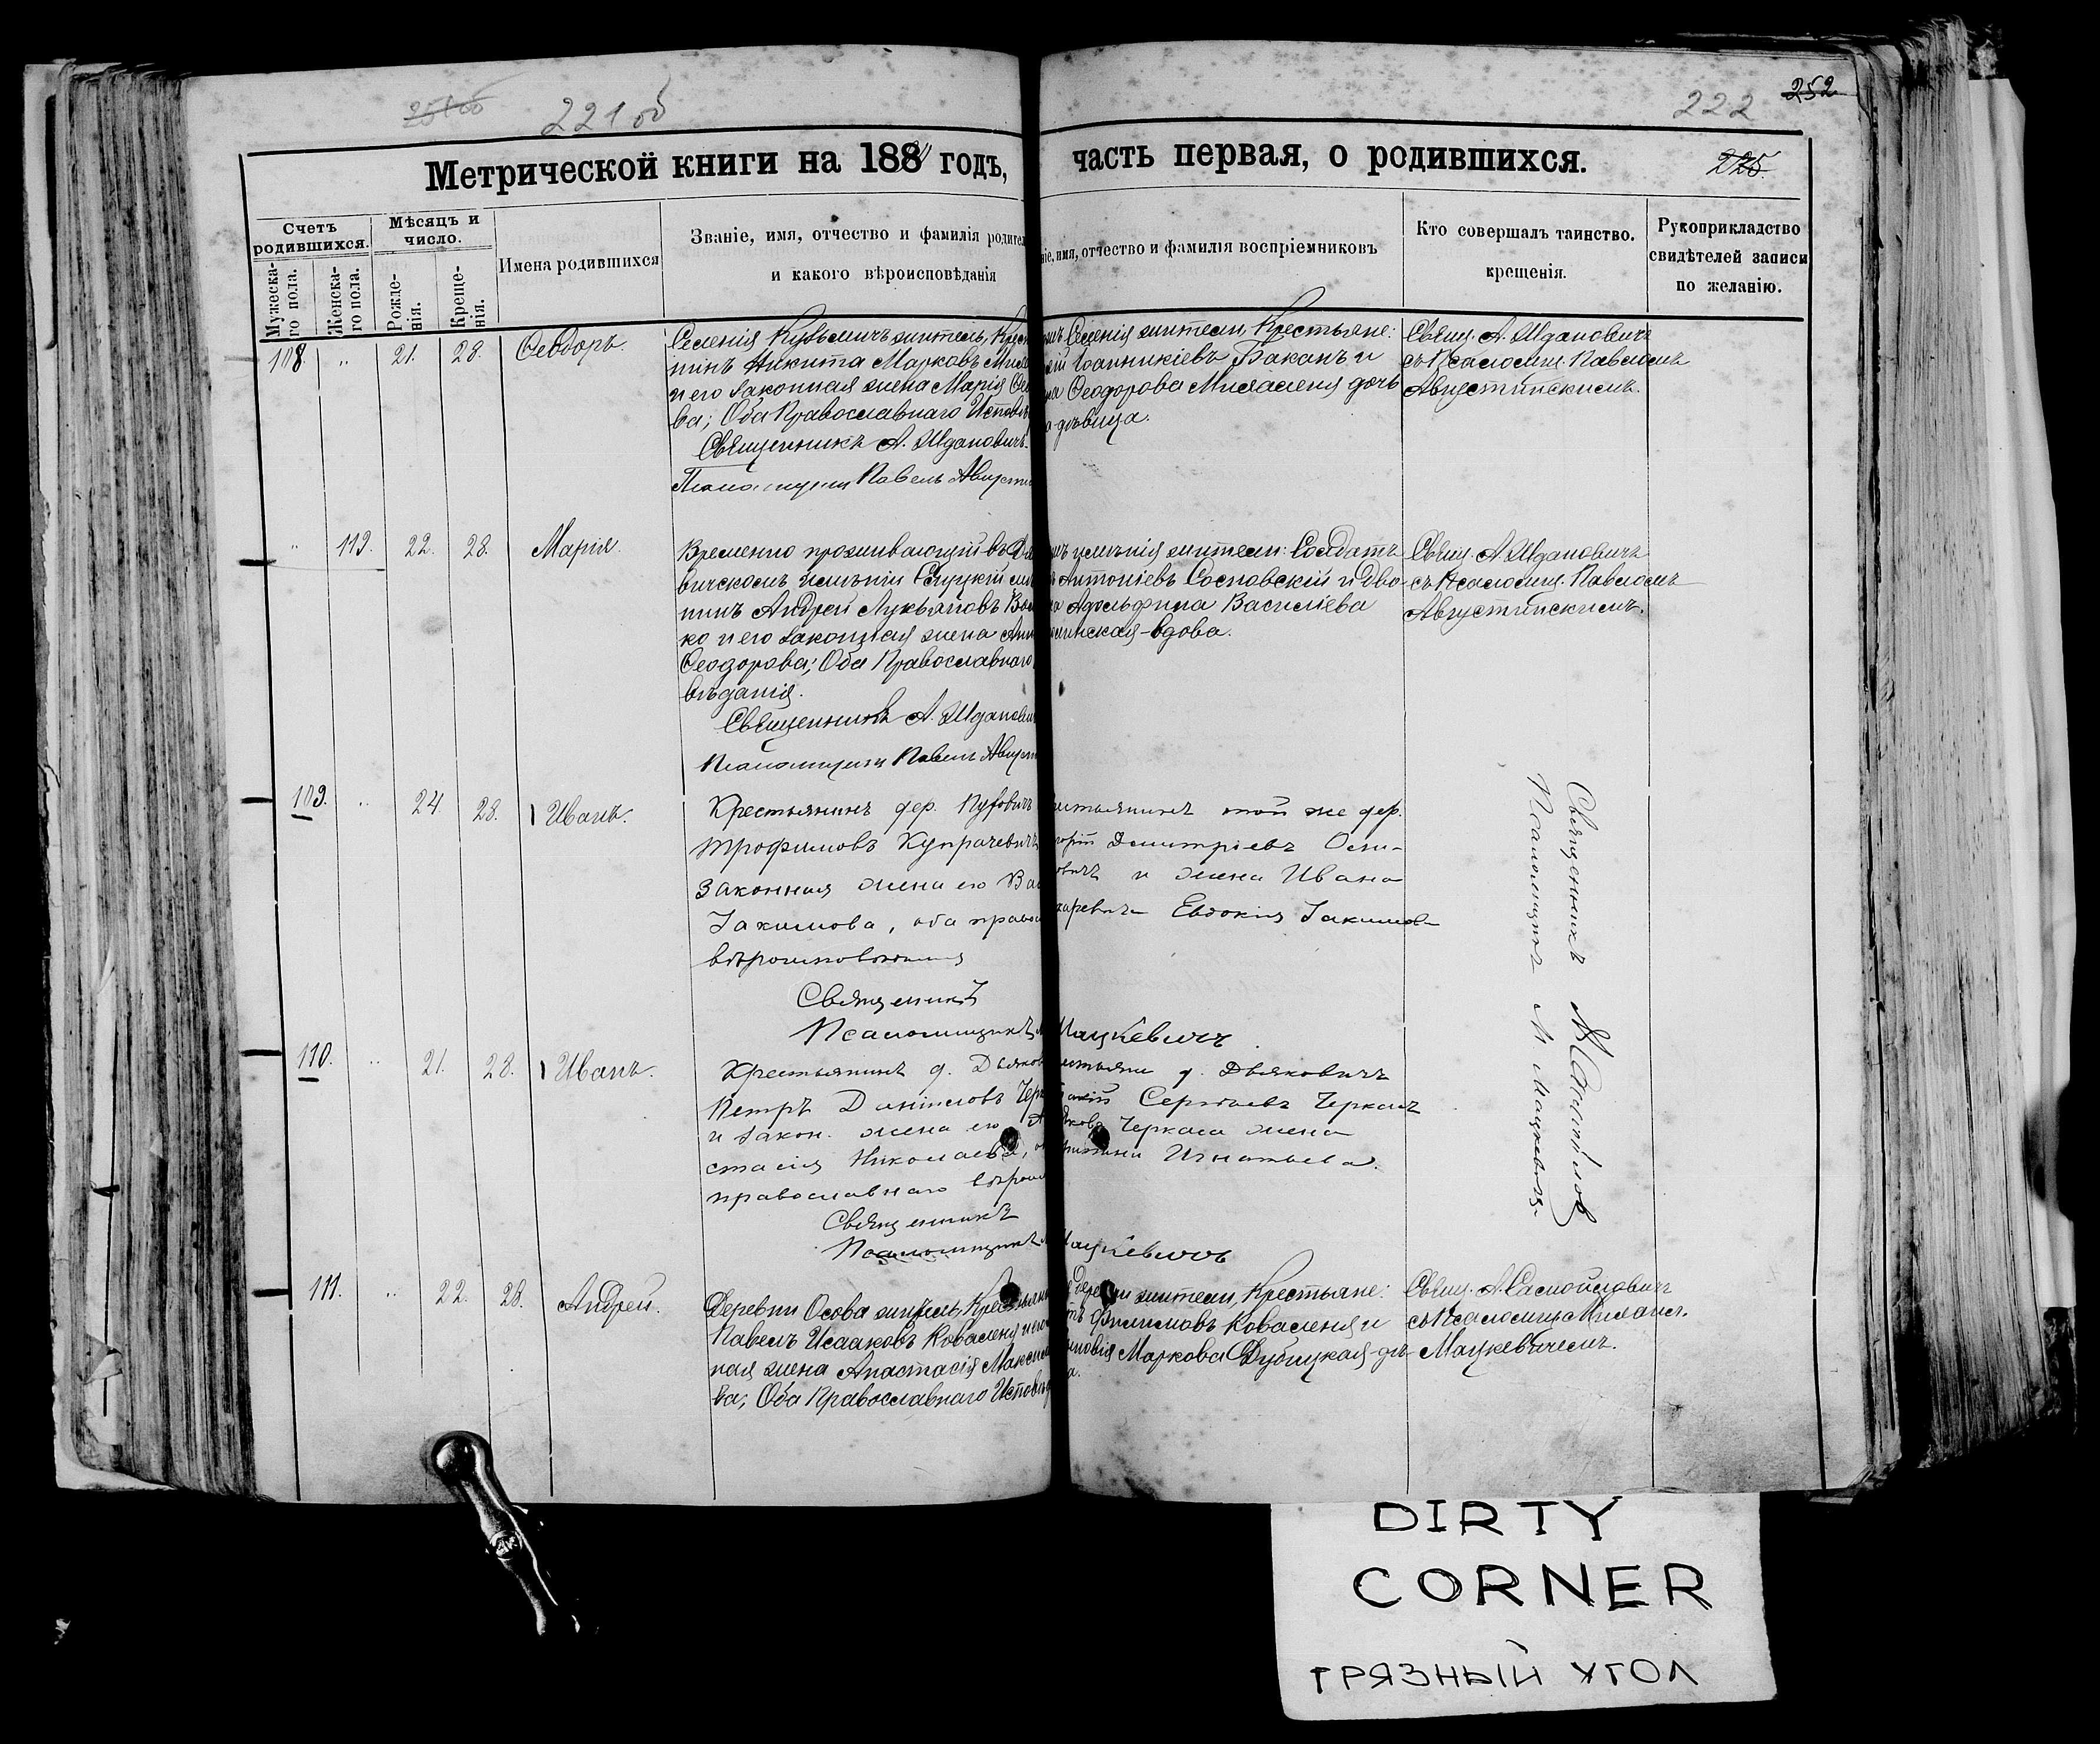 221 об
222
252
Метрической книги на 188 годъ,
часть первая, о родившихся.
225.
Счетъ родившихся.
Мужеска-
го пола.
Женска-
го пола.
Мѣсяцъ и число.
Рожде-
нія.
Креще-
нія.
Имена родившихся
Званіе, имя, отчество и фамилія родител
и какого вѣроисповѣданія
ніе, имя, отчество и фамилія воспріемниковъ
Кто совершалъ таинство.
крещенія.
Рукоприкладство
свидѣтелей записи
по желанію.
108 " 21. 28. Ѳеодоръ.
Селенія житель, Крест
нинъ Никита Марковъ
и его законная жена Марія Ѳео
ва; Оба Православнаго Исповѣ
Священникъ А. Ждановичъ.
Павелъ Августи
Селенія жители, Крестьяне:
Іоанникіевъ Баканъ и
Ѳеодорова дочь
а-дѣвица.
Свящ. А. Ждановичъ
съ Псаломщ. Павломъ
Августинскимъ.
" 119. 22. 28. Марія.
Временно проживающій въ
вичскомъ имѣніи Слуцкій мѣ
нинъ Андрей Лукьяновъ
ко и его законная жена Анн
Ѳеодорова; Оба Православнаго
вѣданія.
Священникъ А. Жданови
Псаломщикъ Павелъ Август
имѣнія жители: Солдатъ
Антоніевъ Сосновскій и дво
на Адольфина Василіева
минская-вдова.
Свящ. А. Ждановичъ
съ Псаломщ. Павломъ
Августинскимъ.
109. " 24 28. Иванъ.
Крестьянинъ дер.
Трофимовъ Купрачевичъ
законная жена его Ва
Іакимова, оба право
вѣроисповѣданія
Священникъ
Псаломщикъ Мацкевичъ
естьянинъ той же дер.
горій Димитріевъ Оси-
овичъ и жена Ивана
Евдокія Іакимов-
110. " 21. 28. Иванъ.
Крестьянинъ д. Дьяков
Петръ Даніиловъ Черк
и закон. жена его
стасія Николаева,
православнаго вѣроис
Священникъ
Псаломщикъ Мацкевичъ
естьяни д. Дьяковичъ
Сергѣевъ Черкасъ
Черкаса жена
Игнатьева.
Священникъ
Псаломщикъ М Мацкевичъ
111. " 22. 28. Андрей.
Деревни Осова житель, Крестьянин
Павелъ Исааковъ Коваленя и его
ная жена Анастасія Максимо
ва; Оба Православнаго Исповѣд
деревни жители, Крестьяне:
Филиповъ Коваленя и
Маркова Дубицкая-дѣ-
а.
Свящ. А. Самойловичъ
съ Псаломщ. Михаил.
Мацкевичемъ.
DIRTY
CORNER
ГРЯЗНЫЙ УГОЛ